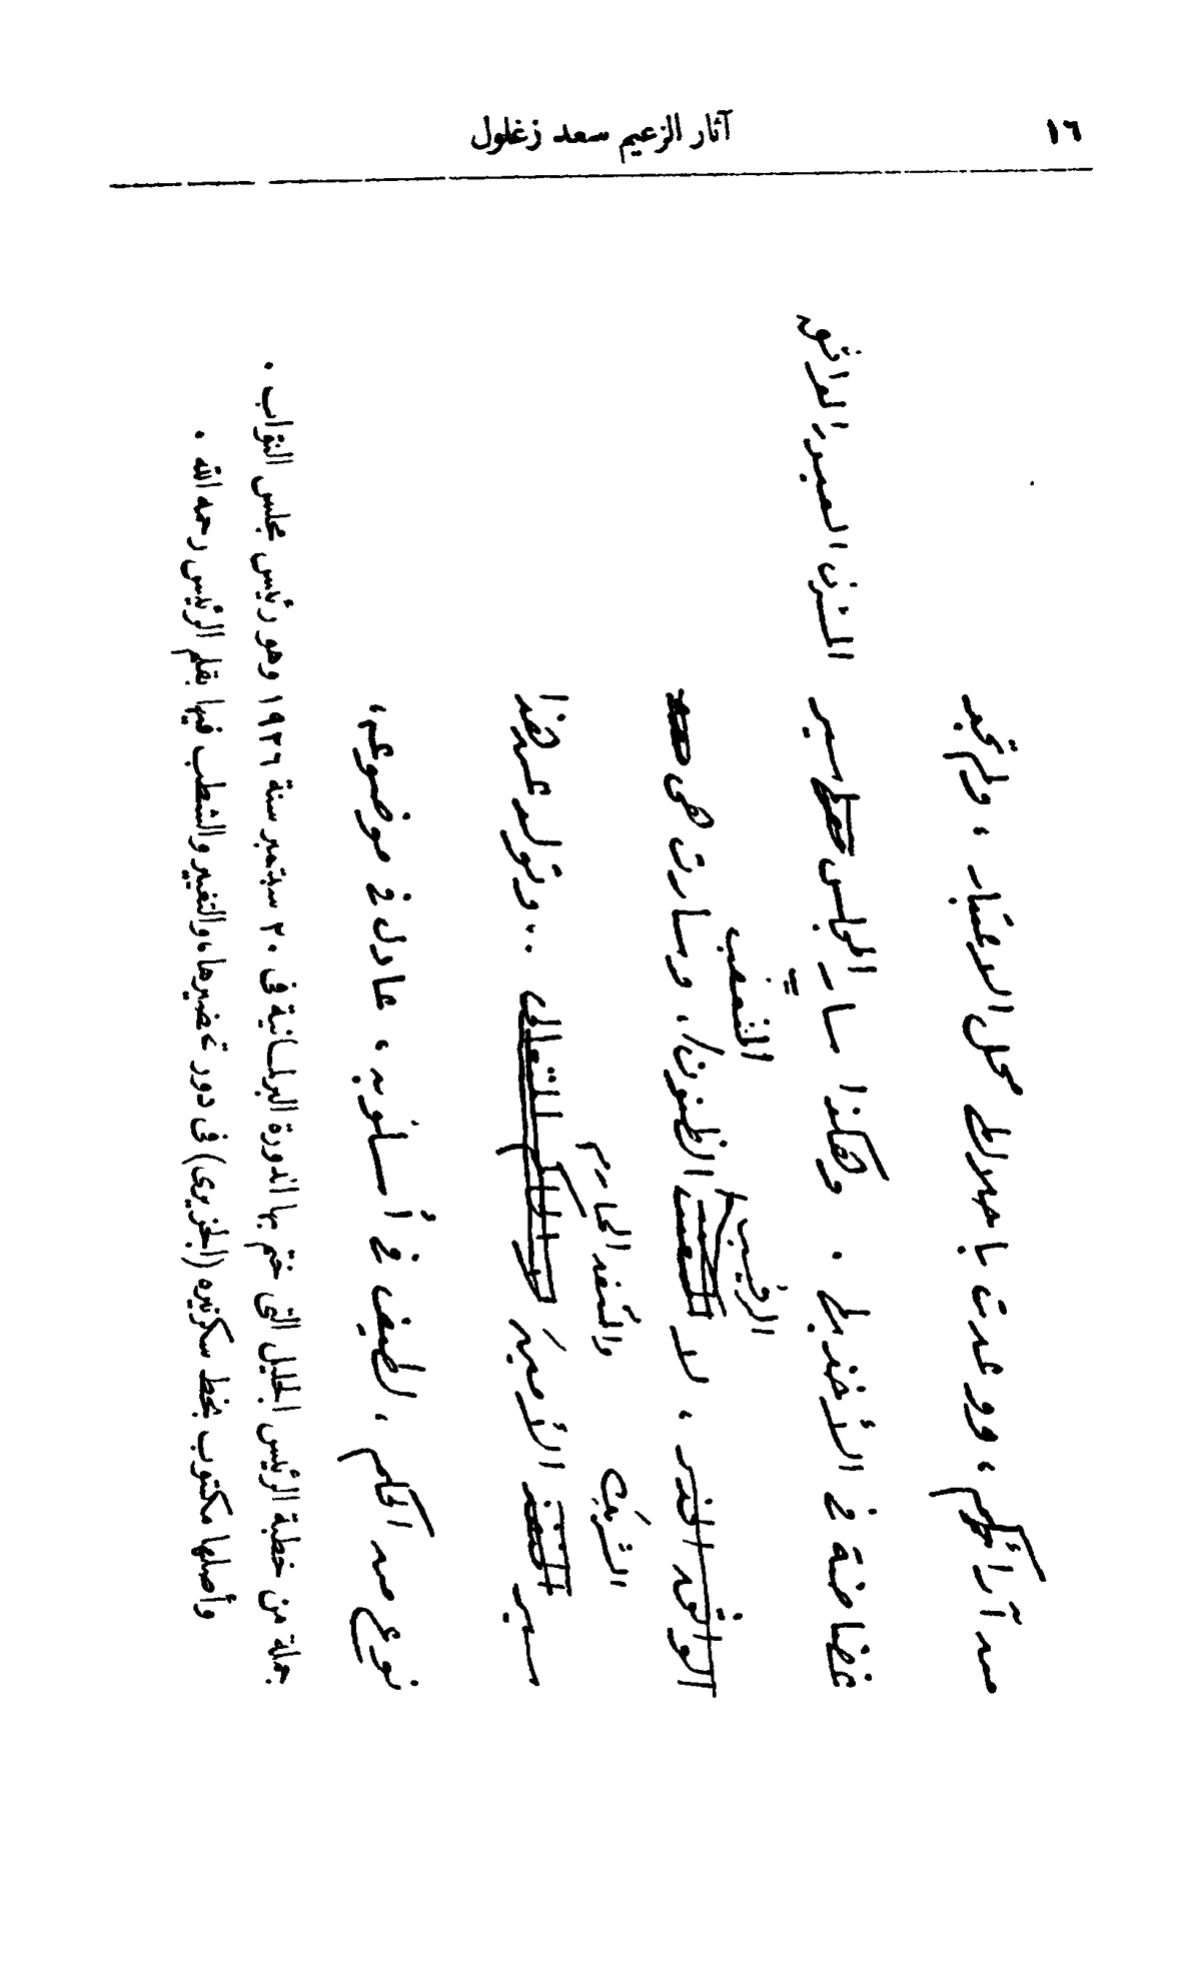 ١٦
آثار الزعيم سعد زغلول
من آرائكم ، ووعدت باجلالها محل الاعتبار ، ولم تجد
غضاضة فى الأخذ بها . وهكذا سار المجلس سير
المتزن الصبور الواثق
الواثق الحذر ، لا الرقيب المتعصب الظنون ، وسارت هى
سير الشريك الأمين والمنفذ الحازم .. وتولد عن هذا
نوع من الحكم ، لطيف فى أسلوبه ، عادل فى موضوعه ،
جملة من خطبة الرئيس الجليل التى ختم بها الدورة البرلمانية فى ٢٠ سبتمبر سنة ١٩٢٦ وهو رئيس مجلس النواب .
وأصلها مكتوب بخط سكرتيره (الجزيرى) فى دور تحضيرها، والتغيير والشطب فيها بقلم الرئيس رحمه الله .